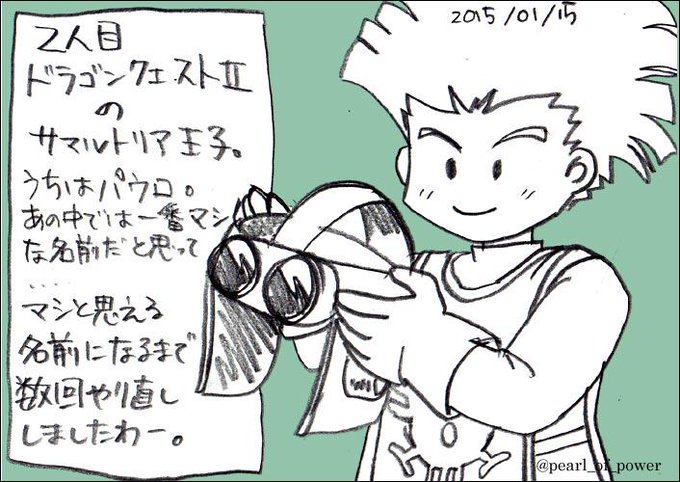 2015/01/15
2人目
ドラゴンクエストⅡ
の
サマルトリア王子。
うちはパウロ。
あの中では一番マシ
な名前だと思って
....
マシと思える
名前になるまで
数回やり直し
しましたわー。
@pearl_of_power